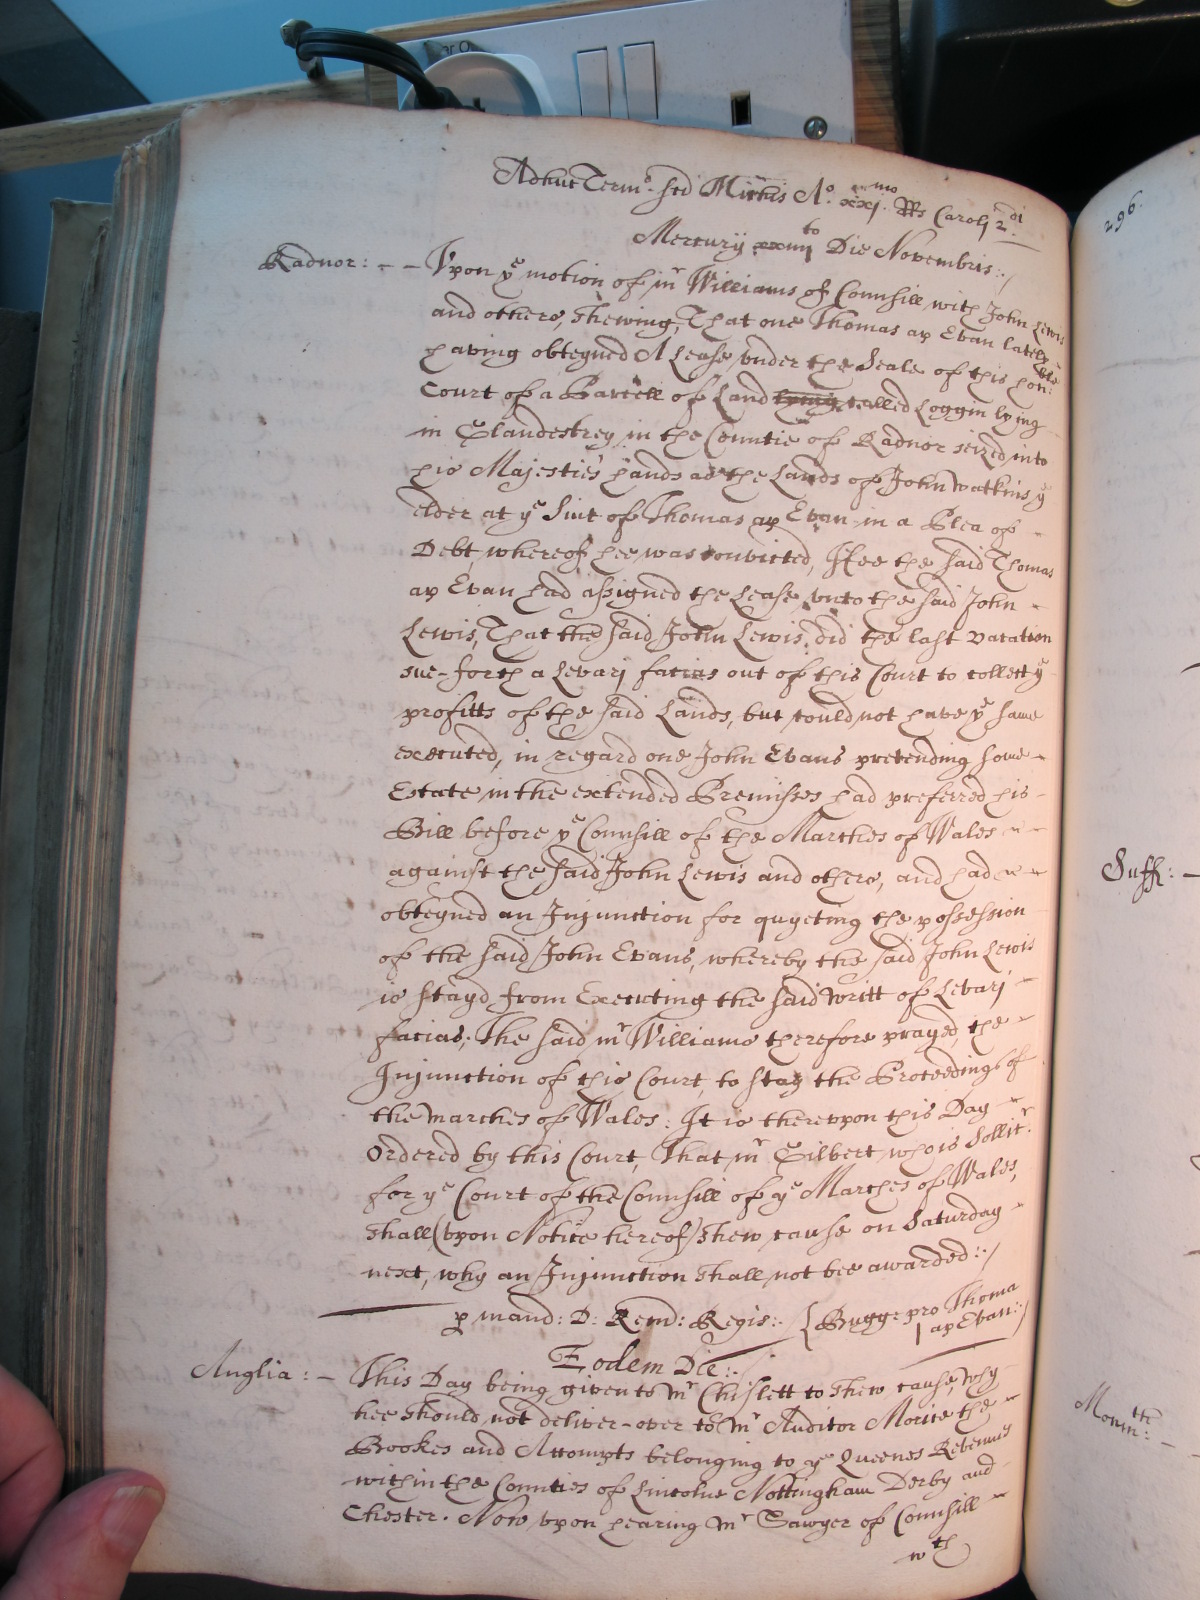 Adhuc Term°. Sci Michis A°. xxj.mo Rs Carolj 2.di
Mercurij xxiiij to Die Novembris:./
Radnor: - - Vpon ye motion of mr Williams of Counsill with John Lewis
and others, shewing, That one Thomas ap Evan lately
having obteyned A Lease vnder the Seale of this hon:ble
Court of a Parcell of Land lying called Loggin lying
in Glandestrey in the Countie of Radnor seized into
his Majesties hands as the Lands of John Watkins ye
elder at ye Suit of Thomas ap Evan in a Plea of -
Debt, whereof hee was convicted, Hee the said Thomas
ap Evan had assigned the Lease vnto the said John -
Lewis, That the said John Lewis, did the last vacation
sue-forth a Levari facias out of this Court to collect ye
profitts of the said Lands, but could not have ye same
executed, in regard one John Evans pretending some -
Estate in the extended Premisses had preferred his -
Bill before ye Counsill of the Marches of Wales - -
against the said John Lewis and others, and had - -
obteyned an Injunction for quyeting the possession
of the said John Evans, whereby the said John Lewis
is stayd from Executing the said writt of Levarj -
facias; The said mr Williams therefore prayed, the -
Injunction of this Court, to stay the Proceedings of
the marches of Wales: It is therevpon this Day -
Ordered by this Court, That mr Gilbert who is Sollicr.
for ye Court of the Counsill of ye Marches of Wales,
shall (vpon Notice hereof) shew cause on Saturday -
next, why an Injunction shall not bee awarded:./
p mand: D: Remd: Regis:. { Bugge pro Thoma
ap Evan:./
Eodem Die:./
Anglia: - This Day being given to mr Chislett to shew cause, why
hee should not deliver-over to mr Auditor Morice the -
Bookes and Accompts belonging to ye Queenes Revenue
within the Counties of Lincolne Nottingham Derby and
Chester. Now vpon hearing mr Sawyer of Counsill -
wth
296.
Suff: -
Monmth: -